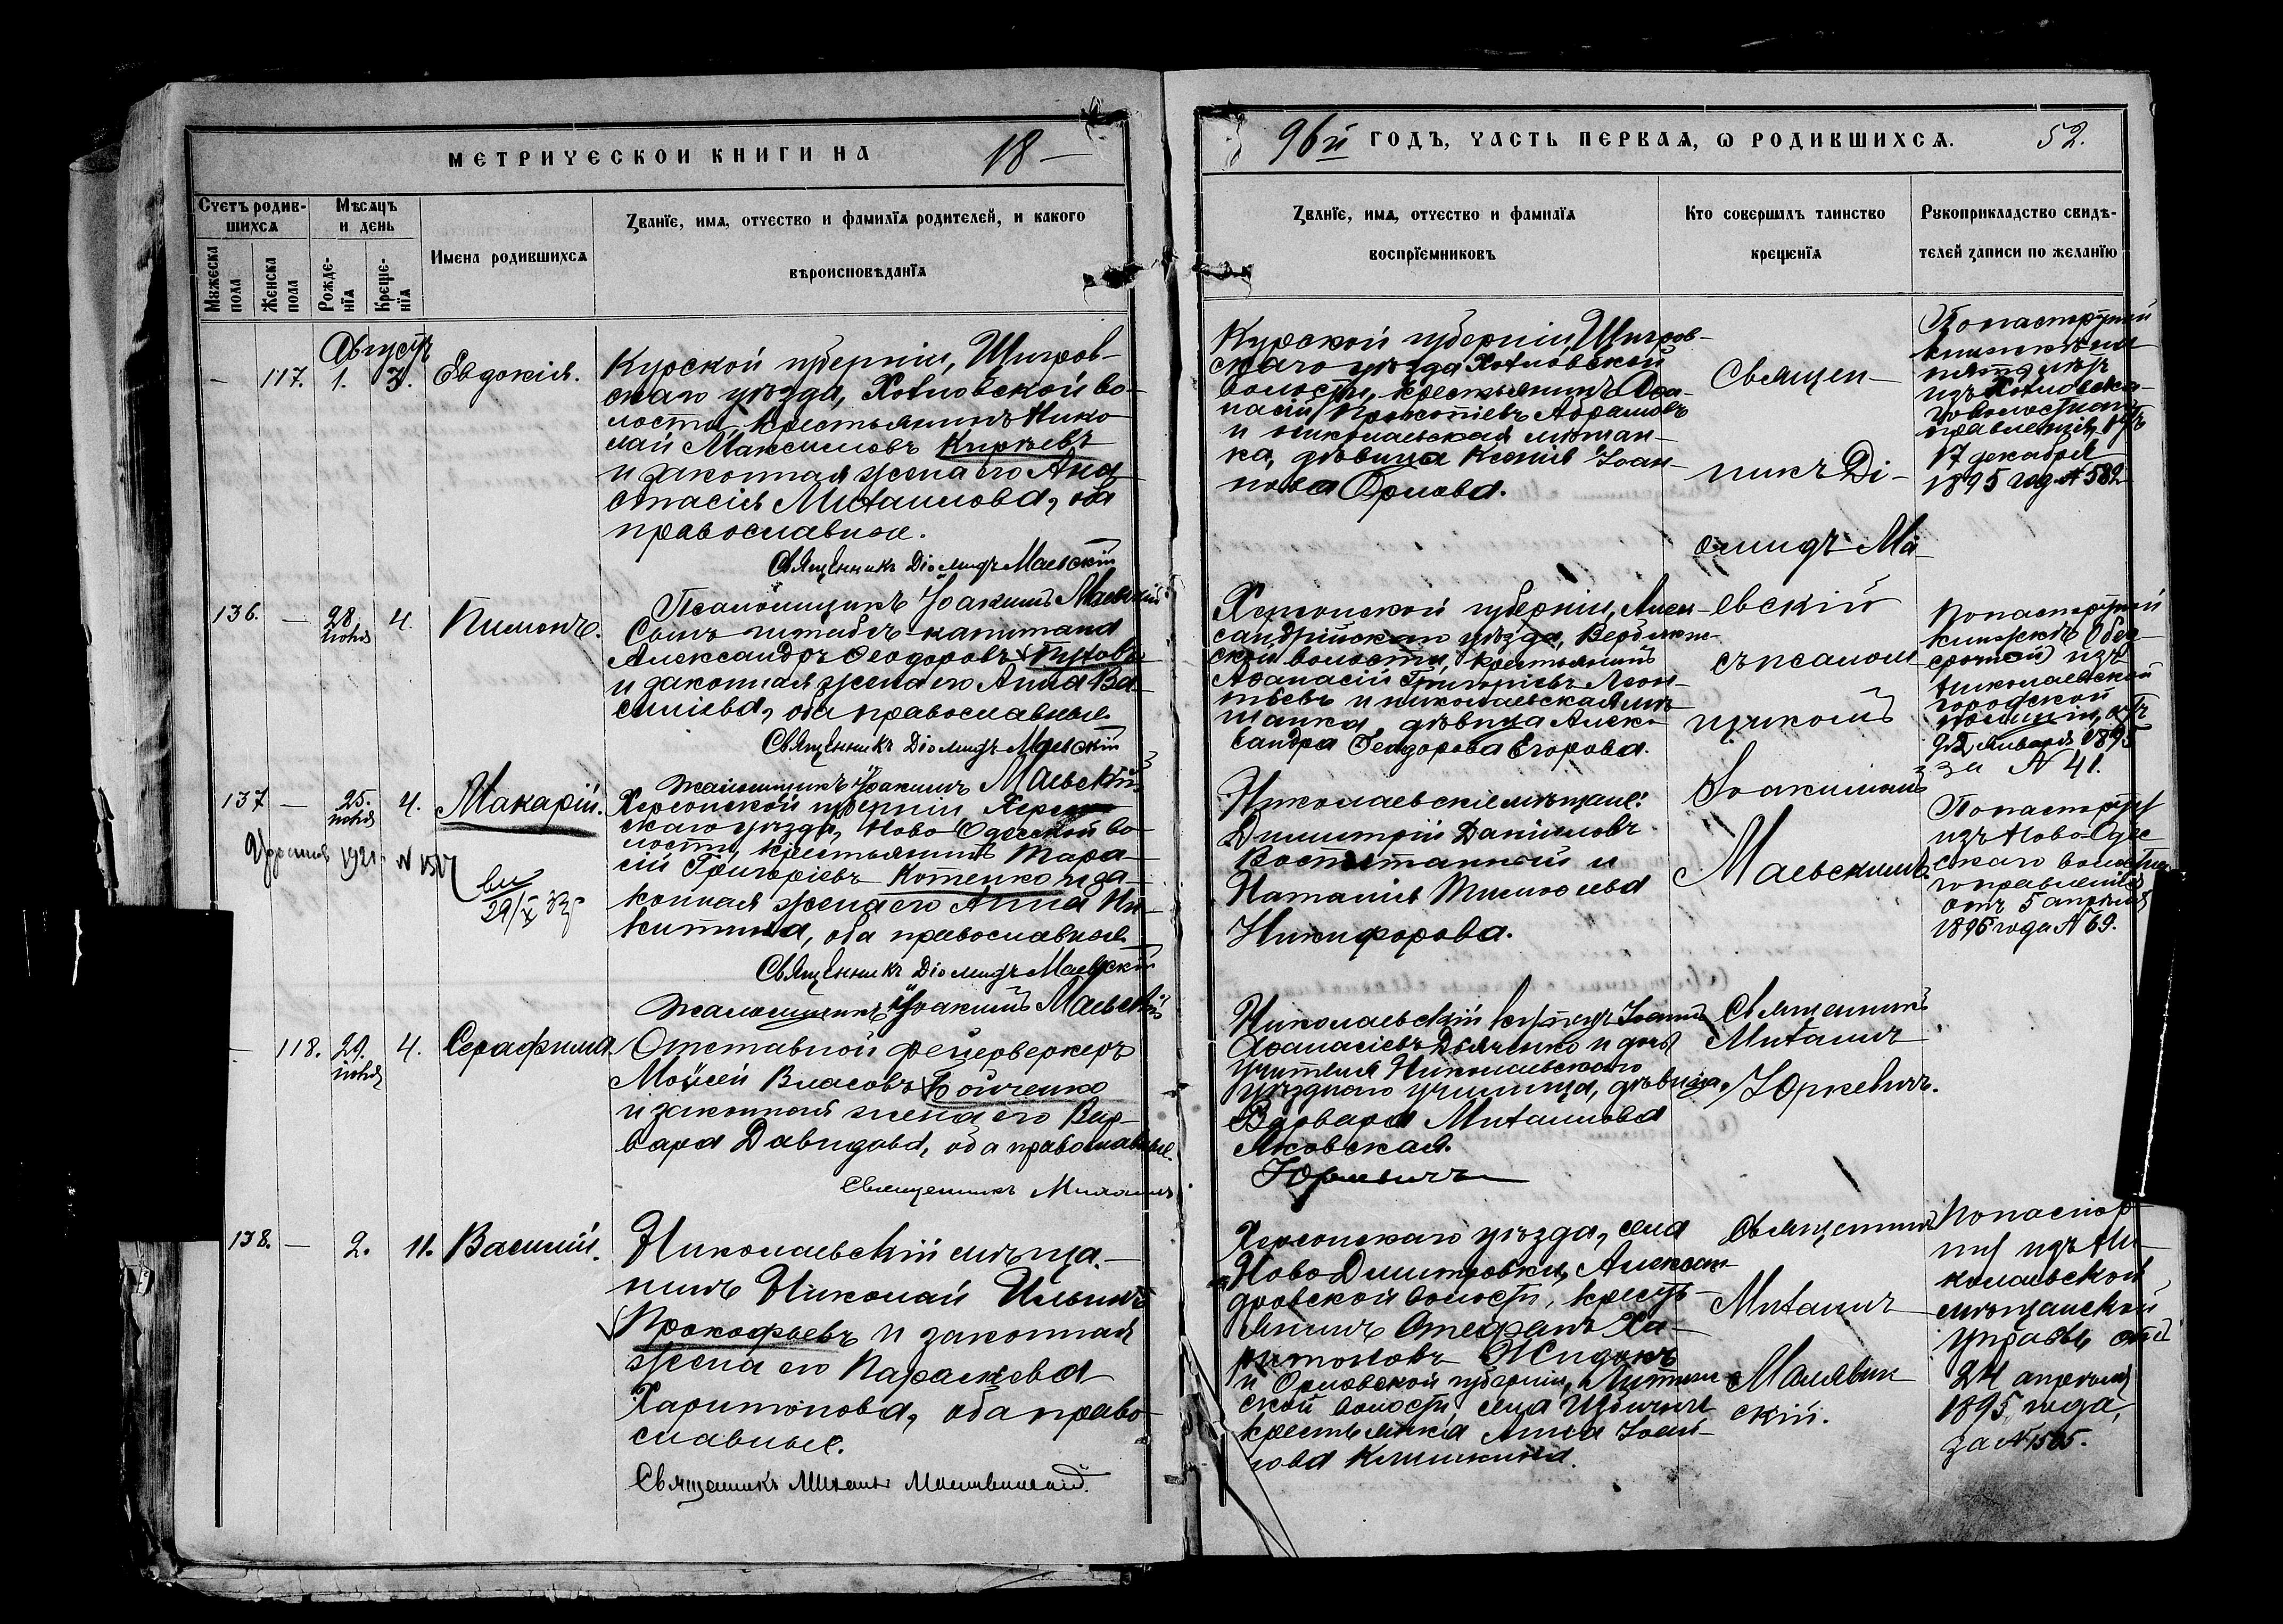 МЕТРИЧЕСКОЙ КНИГИ НА 18—
96й ГОДЪ, ЧАСТЬ ПЕРВАЯ, Ѡ РОДИВШИХСЯ. 52.
Счетъ родив-
шихся
Мужеска пола
Женска пола
Мѣсяцъ
и день
Рожде-
нїя
Креще-
нїя
Имена родившихся
Званїе, имя, отчество и фамилїя родителей, и какого
вѣроисповѣданїя
Званїе, имя, отчество и фамилїя
воспрїемниковъ
Кто совершалъ таинство
крещенїя
Рукоприкладство свидѣ-
телей записи по желанїю
Августъ
— 117. 1. 3. Евдокія.
Курской губерніи, Щигров-
скаго уѣзда, Хохловской во-
лости, крестьянинъ Нико
лай Максимовъ Кирѣевъ
и законная жена его Ана
стасія Михаилова, оба
православные.
Священникъ Діомидъ Маевскій
Псаломщикъ Іоакимъ Маевскій
Курской губерніи, Щигров-
скаго уѣзда Хохловской
волости, крестьянинъ Аѳа-
насій Прокопіевъ Абрамовъ
и николаевская мѣщан-
ка, дѣвица Ксенія Іоан-
нова Орлова.
Священ-
никъ Ді-
омидъ Ма
евскій
съ псалом
щикомъ
Іоакимомъ
Маевскимъ.
По паспортной
книжкѣ
изъ Хохловска-
го волостнаго
правленія, отъ
17 декабря
1895 год. № 582
136. — 28 іюля 4. Пименъ.
Сынъ штабсъ-капитана
Александръ Ѳеодоровъ
и законная жена его Анна Ва-
силіева, оба православные
Священникъ Діомидъ Маевскій
Псаломщикъ Іоакимъ Маевскій
Херсонской губерніи, Алек-
сандрійскаго уѣзда,
ской волости, крестьянинъ
Аѳанасій Григоріевъ Леон-
тьевъ и николаевская мѣ-
щанка, дѣвица Алек-
сандра Ѳеодорова Егорова.
По паспортной
книжкѣ
срочной изъ
Николаевской
городской
полиціи, отъ
января 1895
за № 41.
137 — 25. іюля 4. Макарій.
1921 №
29/X 33
Херсонской губерніи, Херсон
скаго уѣзда, Ново-Одесской во-
лости, крестьянинъ Тара-
сій Григоріевъ Котенко и за-
конная жена его Анна Ни-
китина, оба православные
Священникъ Діомидъ Маевскій
Псаломщикъ Іоакимъ Маевскій
Николаевскіе мѣщане:
Димитрій Даніиловъ
и
Наталія Тимоѳеева
Никифорова.
По паспорту
изъ Ново-Одес
скаго волостна
го правленія
отъ 5 апрѣля
1896 года № 69.
— 118. 29. іюля 4. Серафима.
Отставной фейерверкеръ
Моѵсей Власовъ Бойченко
и законная жена его Вар-
вара Давидова, оба православные.
Священникъ Михаилъ
Юркевичъ
Николаевскій купецъ Іоаннъ
Аѳанасіевъ Дьяченко и дочь
учителя Николаевскаго
уѣзднаго училища, дѣвица
Варвара Михаилова
Яковская.
Священникъ
Михаилъ
Юркевичъ.
138. — 2. 11. Василій.
Николаевскій мѣща-
нинъ Николай Ильинъ
Прокофьевъ и законная
жена его Параскева
Харитонова, оба право-
славные.
Священникъ Михаилъ Малявинскій.
Херсонскаго уѣзда, села
Ново Димитровки, Алексан
дровской волости, кресть-
янинъ Стефанъ Ха-
ритоновъ
и Орловской губерніи,
ской волости села
крестьянка Анна Іоан-
нова
Священникъ
Михаилъ
Малявин
скій.
По паспор-
ту изъ Ни-
колаевской
мѣщанской
управы отъ
24 апрѣля
1895 года,
за № 1505.